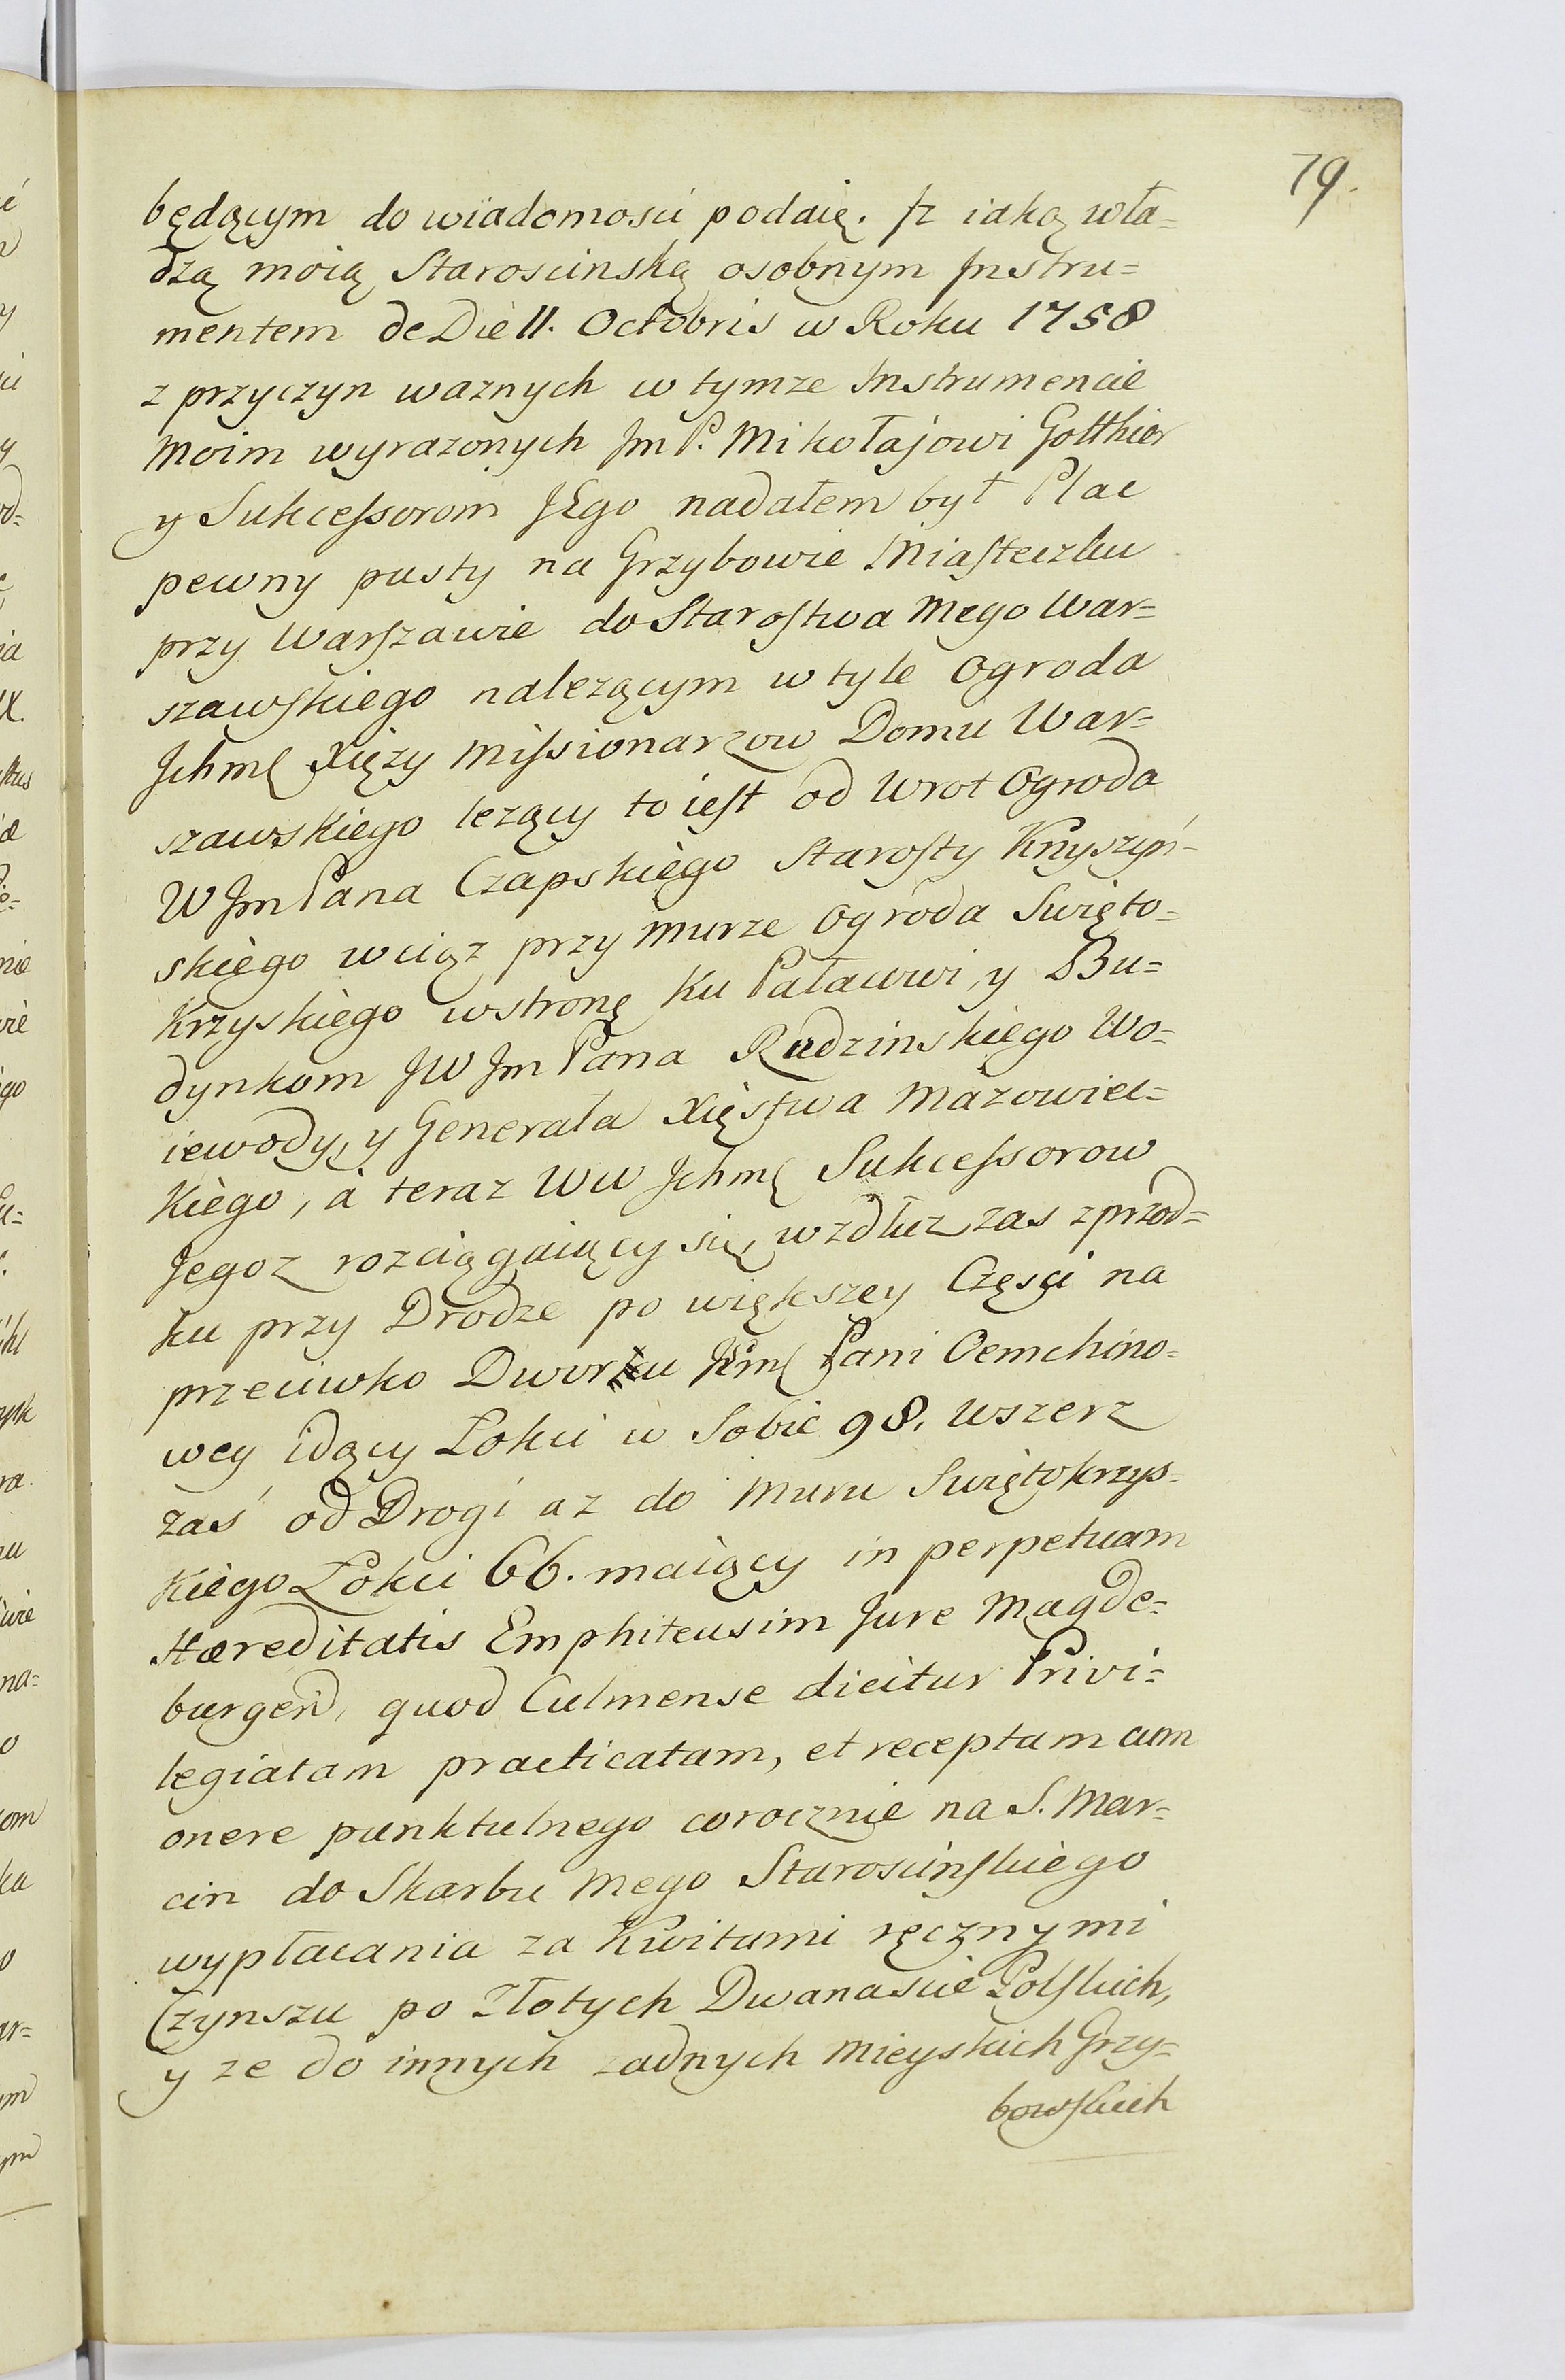 79.
będącym do wiadomosci podaię. Iz iaką wła=
dzą moią Staroscinską osobnym Instru=
mentem de Die 11. Octobris w Roku 1758
z przyczyn waznych w tymze Instrumencie
moim wyrazonych Jm P. Mikołajowi Gotthier
y Sukcessorom JEgo nadałem był Plac
pewny pusty na Grzybowie Miasteczku
przy Warszawie do Starostwa Mego War=
szawskiego nalezącym w tyle Ogroda
Jchmę Xięzy Missionarzow Domu War=
szawskiego lezący to iest od Wrot Ogroda
W Jm Pana Czapskiego Starosty Knyszyń-
skiego wciąz przy murze Ogroda Swięto=
Krzyskiego w stronę Ku Pałacowi, y Bu=
dynkom JW Jm Pana Rudzinskiego Wo=
iewody, y Generała Xięstwa Mazowiec=
Kiego, à teraz WW Jchmę Sukcessorow
Jegoz rozciągaiący się, wzdłuz zas z przod=
ku przy Drodze po większey Częsci na
przeciwko Dworku Jmę Pani Oemchino=
wey idący Łokci w Sobie 98. wszerz
zaś od Drogi az do Muru Swiętokrzys=
Kiego Łokci 66. maiący in perpetuam
Hæreditatis Emphiteusim Jure Magde=
burgen, quod Culmense dicitur Privi=
legiatam practicatam, et receptam cum
onere punktulnego corocznie na S. Mar=
cin do Skarbu Mego Staroscinskiego
wypłacania za Kwitami ręcznymi
Czynszu po Złotych Dwanascie Polskich,
y ze do innych zadnych Mieyskich Grzy=
bowskich